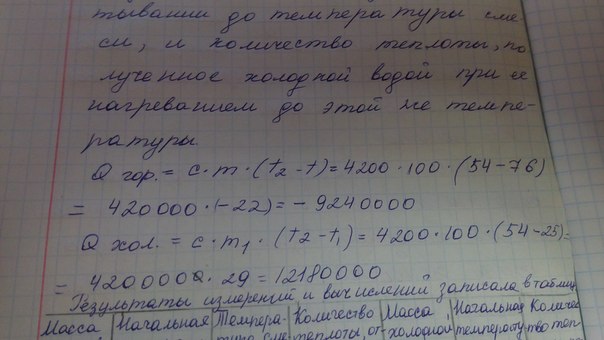 тывании до температуры сме-
си, и количество теплоты, по
лученное холодной водой при ее
нагреванием до этой же темпе-
ратуры.
Q гор. = c · m · (t2 - t) = 4200 · 100 · (54 - 76)
= 420000 · (-22) = - 9240000
Q хол. = c · m1 · (t2 - t1) = 4200 · 100 · (54 - 25) =
= 420000 · 29 = 12180000
Результаты измерений и вычислений записала в таблиц
Масса Начальная Темпера- Количество Масса Начальная Количес
теплоты, от- холодной температу- тво теп